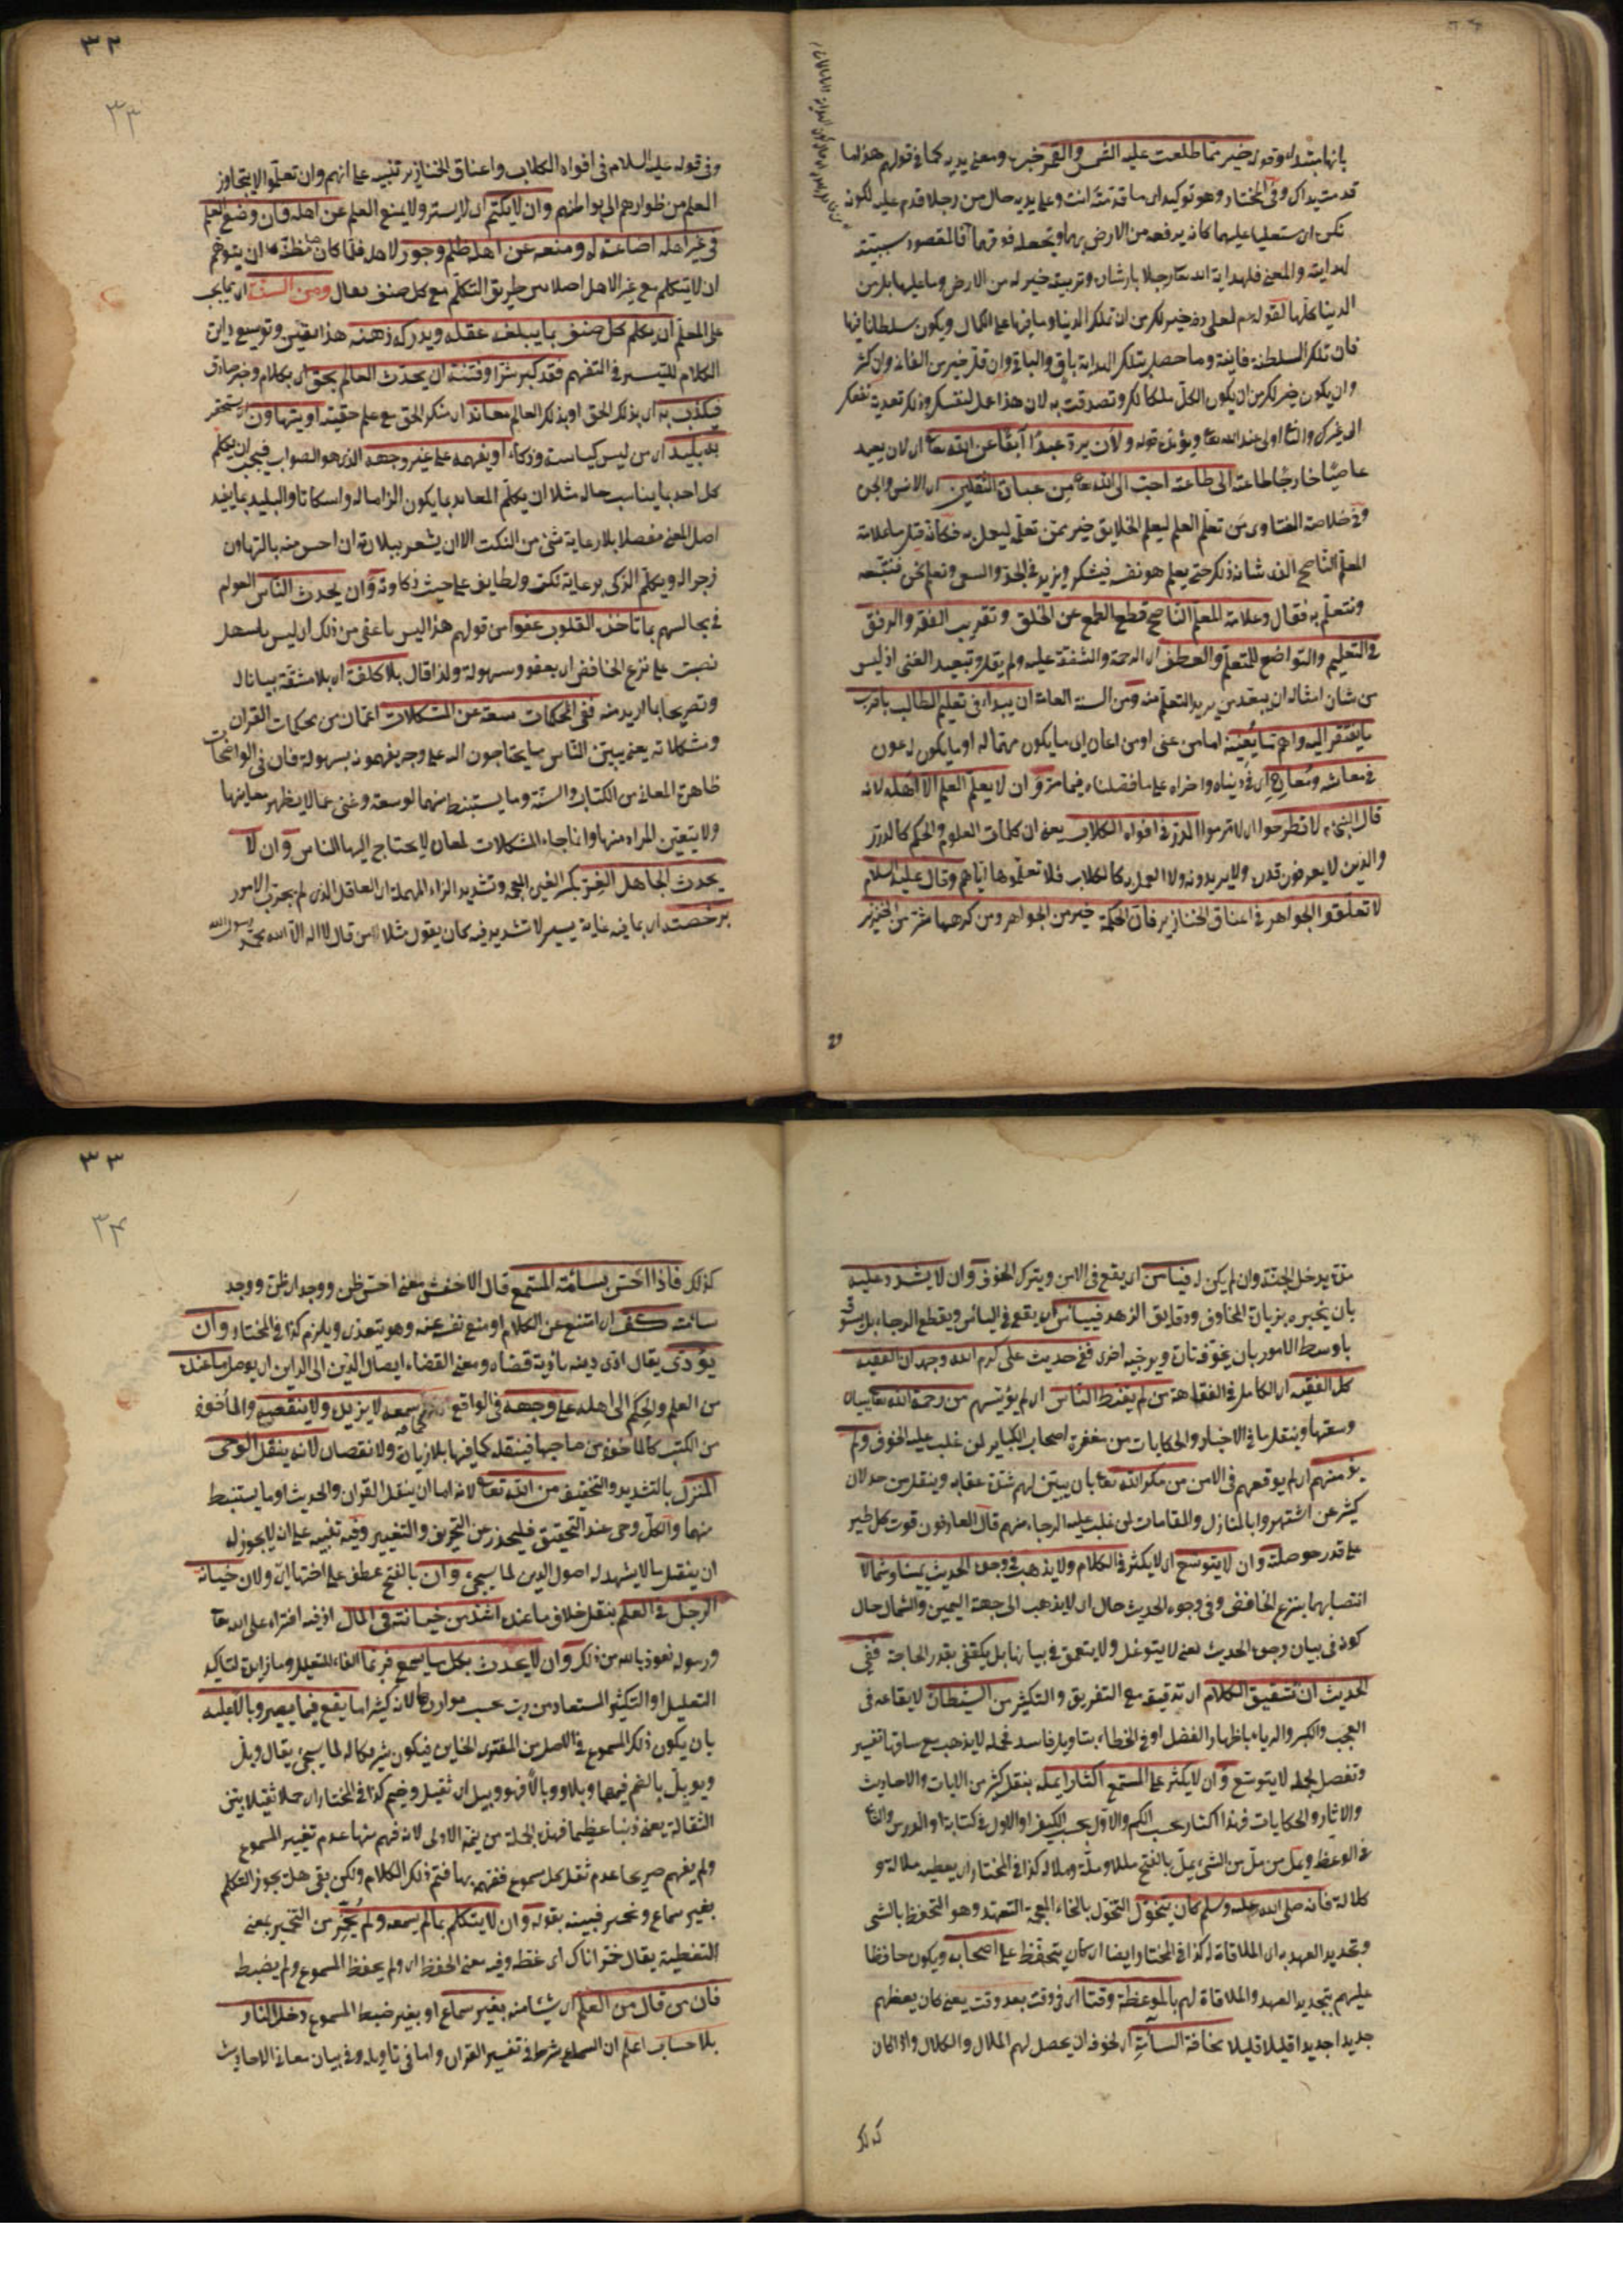 بانها مبتداء وقوله خير مما طلعت عليه الشمس والقمر خبره ومعنى يديه كما في قولهم هذا ما
قدمت يداك وفي المختار وهو توكيد اى ما قدمته انت وعلى يديه حال من رجلا قدم عليه لكونه
لهدايته والمعنى فلهداية الله تعالى رجلا بارشاده وتربيته خير له من الارض وما عليها بل من
الدنيا كلها لقوله لعلى خير لك من ان تملك الدنيا وما فيها على الكمال ويكون سلطانا فيها
فان تلك السلطنة فانية وما حصل بتلك الهداية باق والباقي وان قل خير من الفاني وان كثر
وان يكون خير لك من ان يكون الكل ملكا لك وتصدقت به لان هذا عمل لنفسك وذلك تعديت نفعك
الى غيرك اولى عند الله تعالى ويؤيده قوله ولان يرد عبدا آبقا عن الله تعالى اى لان يعيد
عاصيا خارجا طاعته الى طاعته احب الى الله تعالى من عبادة الثقلين اى الانس والجن
وفي خلاصة الفتاوى من تعلم العلم ليعلم الخلايق خير ممن تعلمه ليعمل به فكأنه قيل ما علامة
المعلم الناصح الذى شانه ذلك حتى يعلم هو نفسه فيشكر ويزيد في الجد والسعى ونعلم نحن فنتبعه
ونتعلم به فقال وعلامة المعلم الناصح قطع الطمع عن الخلق وتقريب الفقير والرفق
في التعليم والتواضع للمتعلم والعطف اى الرحمة والشفقة عليه ولم يقل وتبعيد الغنى اذ ليس
من شان امثاله ان يبعد من يريد التعلم منه ومن السنة العامة ان يبداء في تعليم الطالب باقرب
ما يفتقر اليه واهم ما يعينه اما من عنى او من اعان اى ما يكون مهما له او ما يكون له عون
في معاشه ومعاده اى في دنياه واخراه على ما فصلناه فيما مر وان لا يعلم العلم الا اهله لانه
قال النبي لا تطرحوا اى لا ترموا الدرر في افواه الكلاب يعنى ان كلمات العلوم والحكم كالدرر
والذين لا يعرفون قدره ولا يريدونه ولا العمل به كالكلاب فلا تعلموها اياهم وقال عليه السلام
لا تعلقوا الجواهر في اعناق الخنازير فان الحكمة خير من الجواهر ومن كرهها شر من الخنزير
٣٢
٣٣
وفي قوله عليه السلام في افواه الكلاب واعناق الخنازير تنبيه على انهم وان تعلموا لا يتجاوز
العلم من ظواهرهم الى بواطنهم وان لا يكتم اى لا يستر ولا يمنع العلم عن اهله فان وضع العلم
في غير اهله اضاعة له ومنعه عن اهله ظلم وجور لاهله فلما كان هنا مظنة ان يتوهم
ان لا يتكلم مع غير الاهل اصلا بين طريق التكلم مع كل صنف فقال ومن السنة اى مما يجب
على المعلم ان يكلم كل صنف بما يبلغه عقله ويدركه ذهنه هذا تفنن وتوسيع دايرة
الكلام للتيسير في التفهم فقد كبر شرا وفتنة ان يحدث العالم بحق اى بكلام وخبر صادق
فيكذب به اى بذلك الحق او بذلك العالم معاند اى منكر الحق مع علم حقيته او يتهاون اى يستحقر
به بليد اى من ليس كياسة وذكاء او يفهمه على غير وجهه الذى هو الصواب فيجب ان يكلم
كل احد بما يناسب حاله مثلا ان يكلم المعاند بما يكون الزاما له واسكاتا والبليد بما يفيد
اصل المعنى مفصلا بلا رعاية شئ من النكت الا ان يشعر ببلادته ان احس منه بالتهاون
زجرا له ويكلم الذكى برعاية نكت ولطايف على حيث ذكاوته وان يحدث الناس العوام
في مجالسهم بما تاخذه القلوب عفوا من قولهم هذا ليس ما عفى من ذلك اى ليس ما سهل
نصبت على نزع الخافض اى بعفو وسهولة ولذا قال بلا كلفة اى بلا مشقة بيانا له
وتصريحا بما اريد منه ففى المحكمات سعة عن المشكلات اعم من محكمات القران
ومشكلاته يعنى يبين الناس ما يحتاجون اليه على وجه يفهمونه بسهولة فان في الواضحات
ظاهرة المعانى من الكتاب والسنة وما يستنبط منهما لوسعة وغنى عما لا يظهر معانيها
ولا يتعين المراد منها وانما جاء المشكلات لمعان لا يحتاج اليها الناس وان لا
يحدث الجاهل الغر بكسر الغين المعجمة وتشديد الراء المهملة اى العاقل الذى لم يجرب الامور
برخصة اى بما فيه غاية يسير لا تشديد فيه كان يقول مثلا من قال لا اله الا الله محمد رسول الله
مرة يدخل الجنة وان لم يكن فيأمن اى يقع في الامن ويترك الخوف وان لا يشدد عليه
بان يخبره بزيادة المخاوف ودقايق الزهد فييأس اى يقع في اليأس ويقطع الرجاء بل
باوسط الامور بان يخوفه تارة ويرجيه اخرى ففى حديث على كرم الله وجهه ان الفقيه
كل الفقيه اى الكامل في الفقاهة من لم يقنط الناس اى لم يؤيسهم من رحمة الله تعالى ببيان
وسعتها وينقل ما في الاخبار والحكايات من مغفرة اصحاب الكباير لمن غلب عليه الخوف ولم
يؤمنهم اى لم يوقعهم في الامن من مكر الله تعالى بان يبين لهم شدة عقابه وينقل من
كثير عن اشتهروا بالمنازل والمقامات لمن غلب عليه الرجاء منهم قال العارفون قوت كل طير
على قدر حوصلته وان لا يتوسع اى لا يكثر في الكلام ولا يذهب في وجوه الحديث يمينا وشمالا
انتصابهما بنزع الخافض وفي وجوه الحديث حال اى لا يذهب الى جهة اليمين والشمال حال
كونه في بيان وجوه الحديث يعنى لا يتوغل ولا يتعمق في بيانها بل يكتفى بقدر الحاجة ففى
الحديث ان تشقيق الكلام اى تدقيقه مع التفريق والتكثير من الشيطان لايقاعه في
العجب والكبر والرياء باظهار الفضل او في الخطاء بتاويل فاسد فجملة لا يذهب مع ساقها تفسير
وتفصيل لجملة لا يتوسع وان لا يكثر على المستمع اكثارا يمله بنقل كثير من الايات والاحاديث
والاثار والحكايات فهذا اكثار بحسب الكم والاول بحسب الكيف او الاول في كتابة او الدرس والثانى
في الوعظ ويمل من مل من الشئ يمل بالفتح مللا وملة وملالة كذا في المختار اى يعطيه ملالة و
كلالة فانه صلى الله عليه وسلم كان يتخول التخول بالخاء المعجمة التعهد وهو التحفظ بالشئ
وتجديد العهد به اى الملاقاة له كذا في المختار وايضا اى كان يتحفظ على اصحابه ويكون حافظا
عليهم بتجديد العهد والملاقاة لهم بالموعظة وقتا اى في وقت بعد وقت يعنى كان يعظهم
جديدا جديدا قليلا قليلا مخافة السآمة اى لخوفه ان يحصل لهم الملال والكلال واذا كان
كذلك
٣٣
٣٤
كذلك فاذا احس بسآمة المستمع قال الاخفش معنى احس ظن ووجد اى ظن ووجد
سآمته كف اى امتنع عن الكلام او منع نفسه عنه وهو يتعدى ويلزم كذا في المختار وان
يؤدى يقال ادى دينه تأدية قضاه ومعنى القضاء ايصال الدين الى الداين اى يوصل ما عنده
من العلم والحكم الى اهله على وجهه في الواقع سمعه لا يزيد ولا ينقصه والمأخوذ
من الكتب كالمأخوذ من صاحبها فينقله كما فيها بلا زيادة ولا نقصان لانه ينقل الوحى
المنزل بالتشديد والتخفيف من الله تعالى لانه اما ان ينقل القران والحديث او ما يستنبط
منهما والكل وحى عند التحقيق فليحذر عن التحريف والتغيير وفيه تنبيه على انه لا يجوز له
ان ينقل ما لا يشهد له اصول الدين لما سيجئ وان بالفتح عطف على اختها اى ولان خيانة
الرجل في العلم بنقل خلاف ما عنده اشد من خيانته في المال اذ فيه افتراء على الله تعالى
ورسوله نعوذ بالله من ذلك وان لا يحدث بكل ما يسمع فربما الفاء للتعليل وما زايدة لتاكيد
التعليل او التكثير المستعاد من رب بحسب موارده لانه كثيرا ما يقع فيما يصير وبالا عليه
بان يكون ذلك المسموع في الاصل من المفترى الخاين فيكون شريكا له لما سيجئ يقال وبل
ويوبل بالضم فيهما وبلا ووبالا فهو وبيل اى ثقيل وخيم كذا في المختار اى حملا ثقيلا بين
الثقالة يعنى ذنبا عظيما فهذه الجملة من تتمة الاولى لانه فهم منها عدم تغيير المسموع
ولم يفهم صريحا عدم نقل كل مسموع ففهم بها فتم ذلك الكلام ولكن بقى هل يجوز التكلم
بغير سماع وغيره فبينه بقوله وان لا يتكلم بما لم يسمعه ولم يخمر من التخمير بمعنى
التغطية يقال خمر اناك اى غطه وفيه معنى الحفظ اى ولم يحفظ المسموع ولم يضبط
فان من قال من العلم اى شيئا منه بغير سماع او بغير ضبط المسموع دخل النار
بلا حساب اعلم ان السماع شرط في تفسير القران واما في تاويله وفي بيان معانى الاحاديث